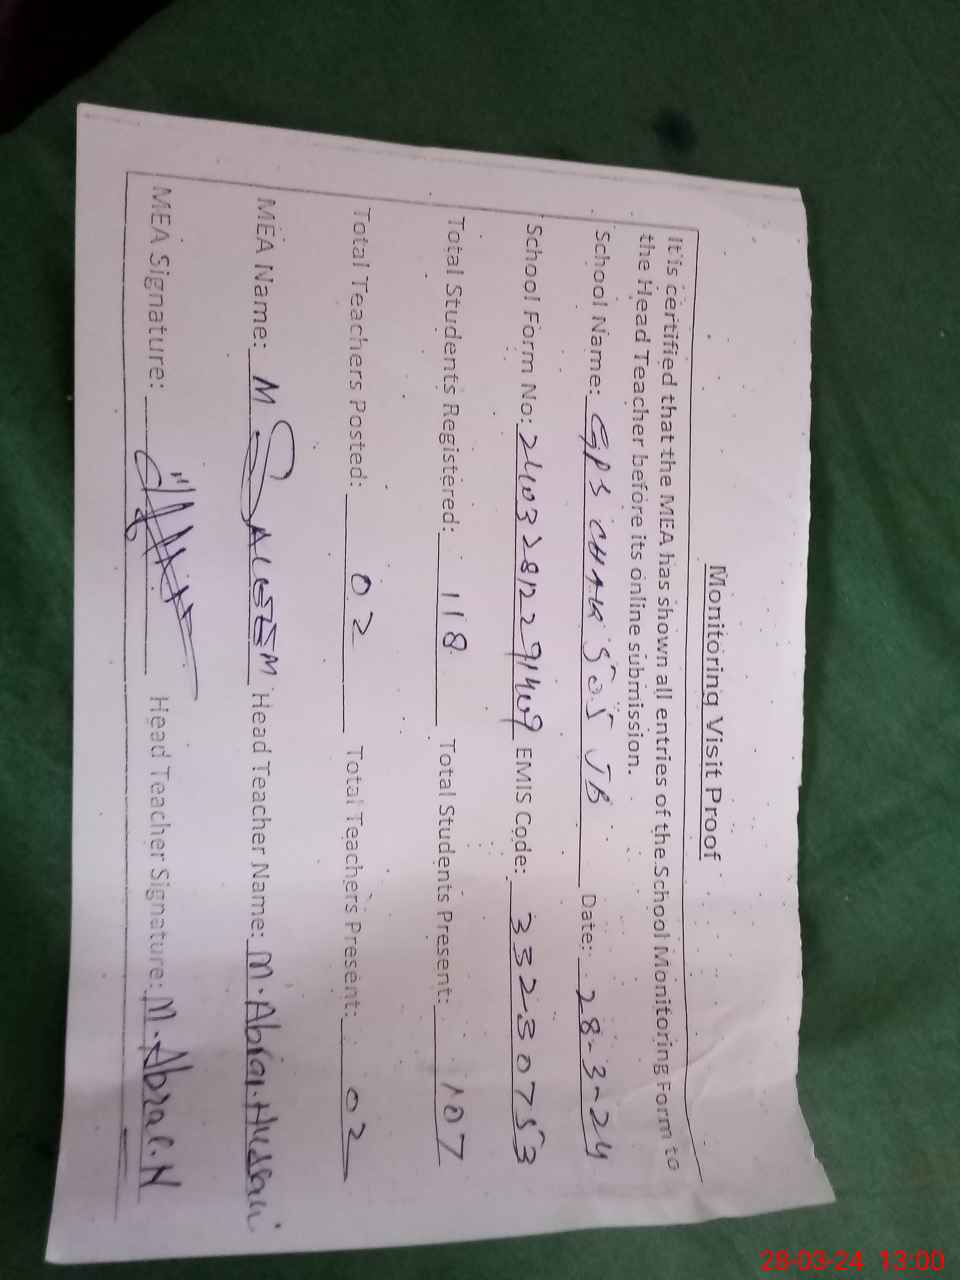 Monitoring Visit Proof
It is certified that the MEA has shown all entries of the School Monitoring Form to
the Head Teacher before its online submission.
School Name: GPS CHAK 505 JB Date: 28-3-24
School Form No: EMIS Code: 33230753
Total Students Registered: 118 Total Students Present: 107
Total Teachers Posted: 02 Total Teachers Present: 02
MEA Name: M SALEEM Head Teacher Name: M. Abrar. Hussain
MEA Signature: Head Teacher Signature: M. Abrar. H
28-03-24 13:00